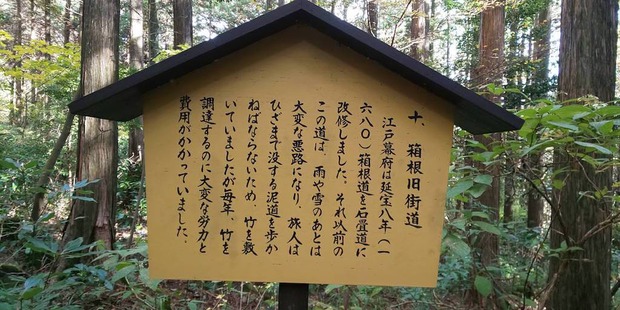 十、箱根旧街道
江戸幕府は延宝八年(一
六八〇)箱根道を石畳道に
改修しました。それ以前の
この道は、雨や雪のあとは
大変な悪路になり、旅人は
ひざまで没する泥道を歩か
ねばならないため、竹を敷
いていましたが毎年、竹を
調達するのに大変な労力と
費用がかかっていました。